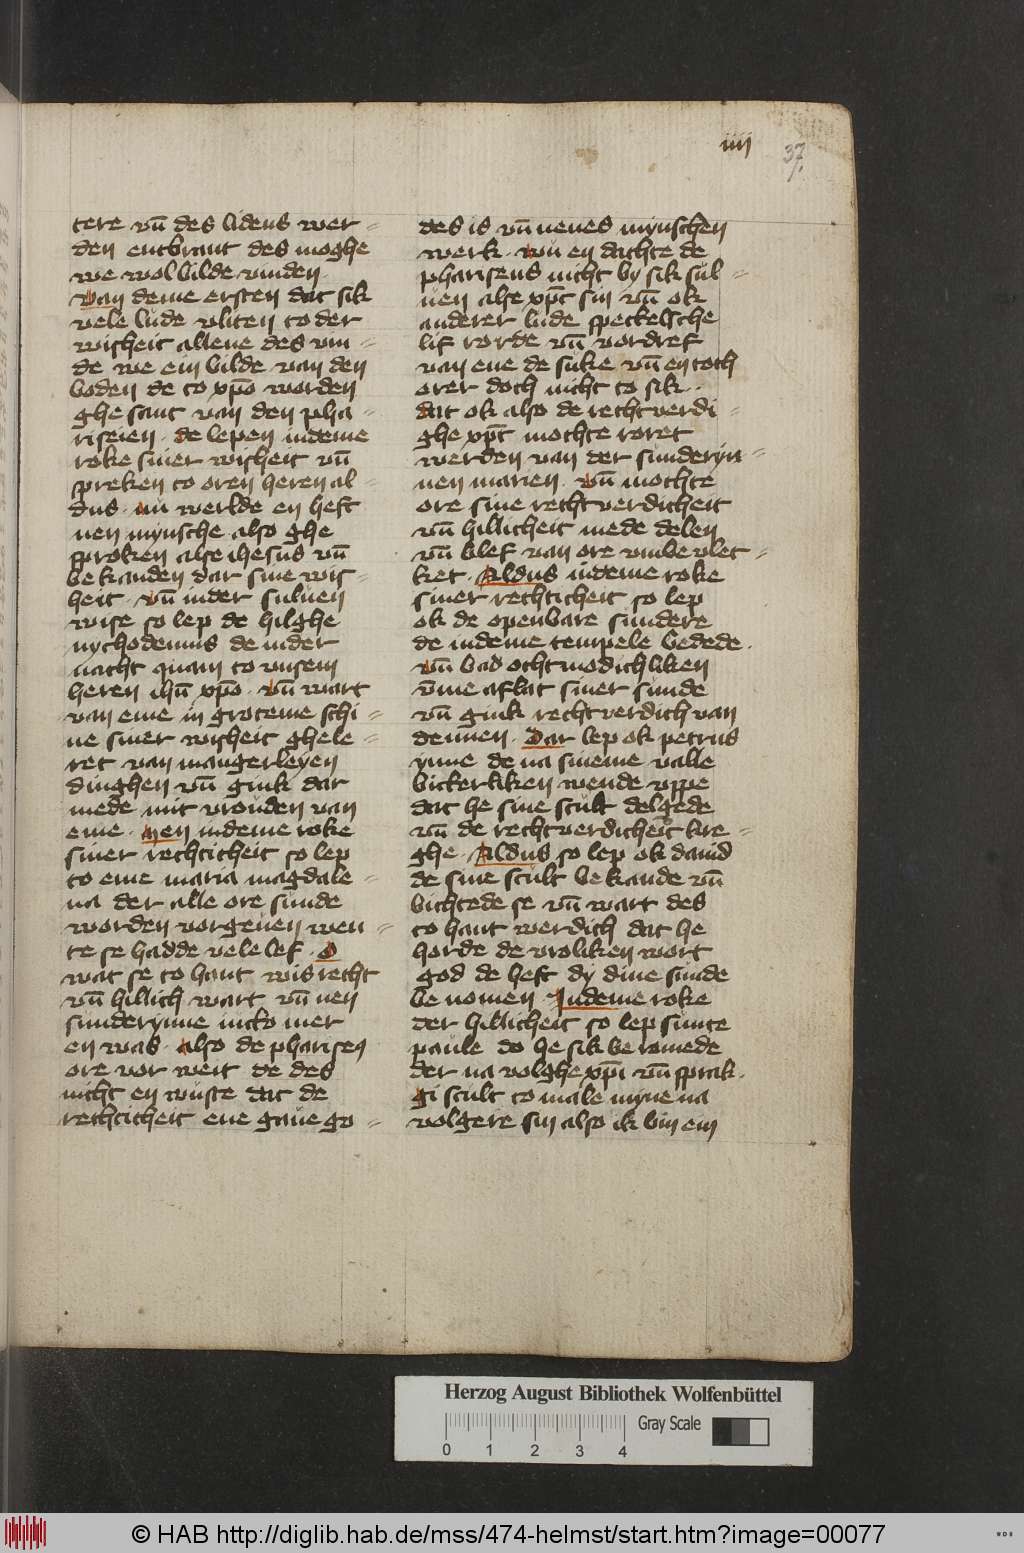 iiij
37
tere vn̄ des lidens wer=
den entbrant des moghe
we wol bilde vinden.
Van deme ersten dat sik
vele lude vliten to der
wisheit allene des vin=
de we ein bilde van den
boden de to xp̄o worden
ghe sant van den pha=
riseien. de lepen indeme
roke siner wisheit vn̄
spreken to oren heren al=
dus. an werlde en heft
nen mynsche also ghe
sproken alse ihesus vn̄
be kanden dar sine wis=
heit. vn̄ inder suluen
wise so lep de hilghe
nychodemus de inder
nacht quam to vnsem
heren ihū xp̄o. vn̄ wart
van eme in groteme schi=
ne siner wisheit ghele=
ret van mangerleyen
dinghen vn̄ gink dar
mede mit vrouden van
eme. Men indeme roke
siner rechticheit so lep
to eme maria magdale=
na der alle ore sunde
worden vorgeuen wen=
te se hadde vele lef. O
wat se to hant wis recht
vn̄ hillich wart vn̄ nen
sunderynne nicko mer
en was. also de phariseꝯ
ore vor weit de des
nicht en wuste dat de
rechticheit ene gaue go=
des is vn̄ nenes mynschen
werk. vn̄ en dachte de
phariseus nicht by sik sul=
uen alse xp̄c sin vn̄ ok
anderer lude speckelsche
lif rorde vn̄ vordref
van ene de suke vn̄ en toch
orer doch nicht to sik.
dat ok also de rechtuerdi=
ghe xp̄c mochte roret
werden van der sunderyn=
nen marien. vn̄ mochte
ore sine rechtuerdicheit
vn̄ hillicheit mede delen
vn̄ blef van ore vmbevlec=
ket. Aldus indeme roke
siner rechticheit so lep
ok de openbare sundere
de indeme tempele bedede.
vn̄ bad othmodichliken
v̄me aflat siner sunde
vn̄ gink rechtverdich van
dennen. Dar lep ok petrus
ynne de na sineme valle
bickerliken wende vppe
dat he sine scult delgede
vn̄ de rechtverdicheit kre=
ghe. Aldus so lep ok dauid
de sine scult be kande vn̄
bichtede se vn̄ wart des
to hant werdich dat he
horde de vroliken wort
god de heft dy dine sunde
be nomen Indeme roke
der hillicheit so lep sunte
paule do he sik be romede
der na volghe xp̄i vn̄ sprak.
gi scult to male myne na
volgere sin also ik bin ein
Herzog August Bibliothek Wolfenbüttel
Gray Scale
0 1 2 3 4
© HAB http://diglib.hab.de/mss/474-helmst/start.htm?image=00077
WDB